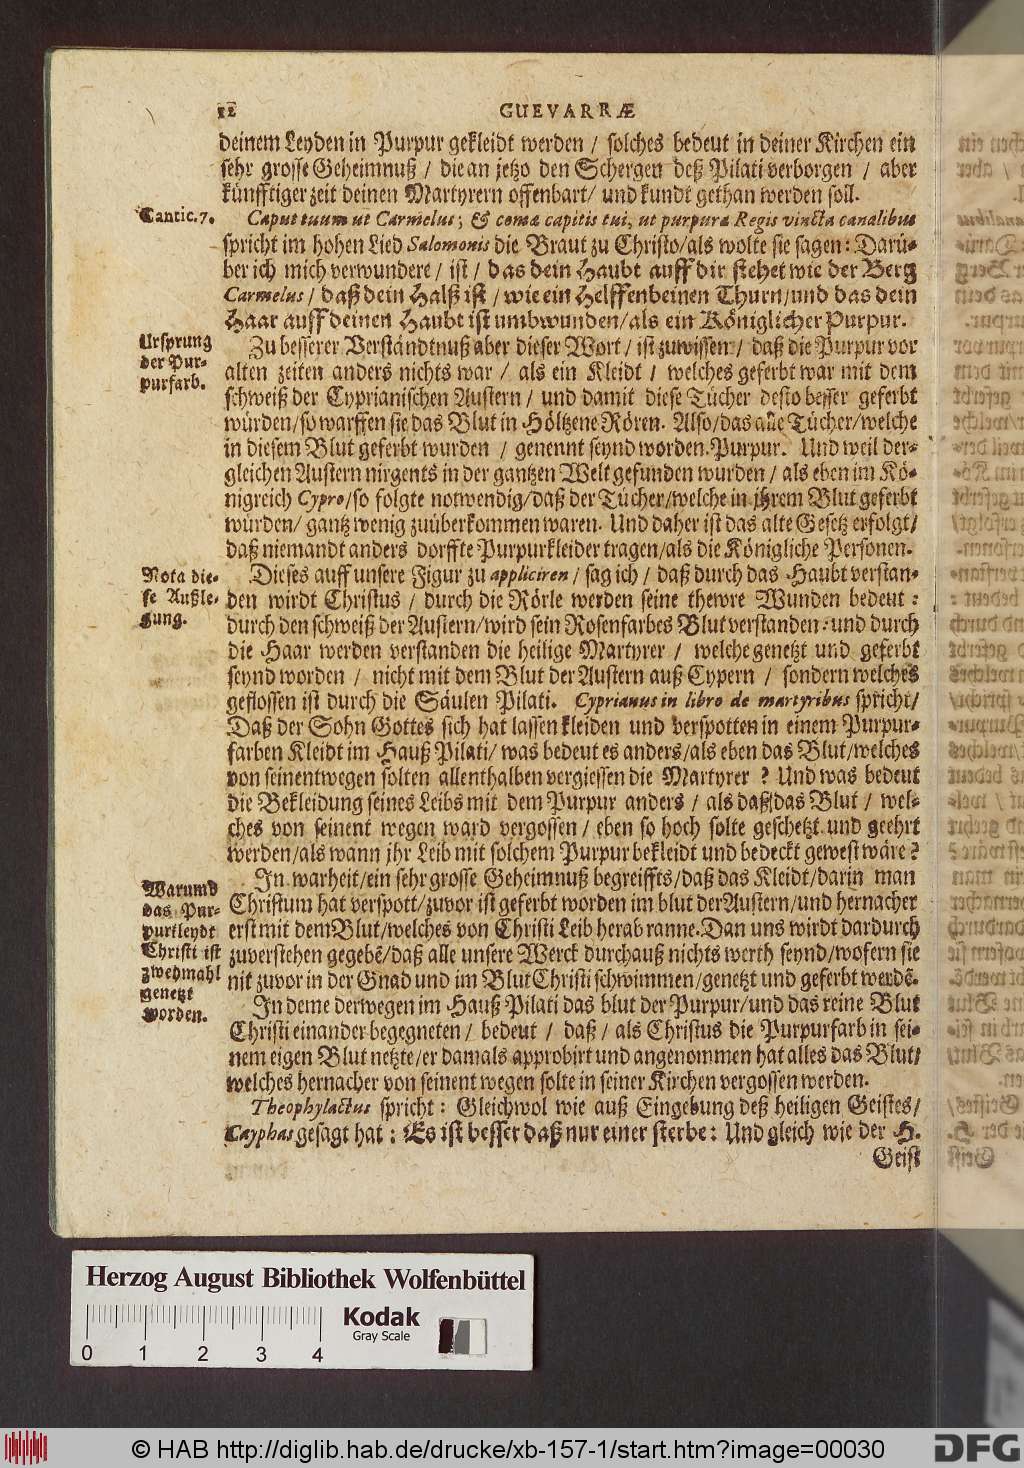 12 GUEVARRÆ
deinem Leyden in Purpur gekleidt werden / solches bedeut in deiner Kirchen ein
sehr grosse Geheimnuß / die an jetzo den Schergen deß Pilati verborgen / aber
künfftiger zeit deinen Martyrern offenbart / und kundt gethan werden soll.
Cantic. 7. Caput tuum ut Carmelus; & comæ capitis tui, ut purpura Regis vincta canalibus
spricht im hohen Lied Salomonis die Braut zu Christo/als wolte sie sagen: Darü-
ber ich mich verwundere / ist / das dein Haubt auff dir stehet wie der Berg
Carmelus / daß dein Halß ist / wie ein Helffenbeinen Thurn/und das dein
Haar auff deinen Haubt ist umbwunden/als ein Königlicher Purpur.
Ursprung
der Pur-
purfarb.
Zu besserer Verständtnuß aber dieser Wort / ist zuwissen / daß die Purpur vor
alten zeiten anders nichts war / als ein Kleidt / welches geferbt war mit dem
schweiß der Cyprianischen Austern / und damit diese Tücher desto besser geferbt
würden/so warffen sie das Blut in Höltzene Rören. Also/das alle Tücher/welche
in diesem Blut geferbt wurden / genennt seynd worden Purpur. Und weil der-
gleichen Austern nirgents in der gantzen Welt gefunden wurden / als eben im Kö-
nigreich Cypro/so folgte notwendig/daß der Tücher/welche in jhrem Blut geferbt
würden/ gantz wenig zuüberkommen waren. Und daher ist das alte Gesetz erfolgt/
daß niemandt anders dorffte Purpurkleider tragen/als die Königliche Personen.
Nota die-
se Außle-
gung.
Dieses auff unsere Figur zu appliciren / sag ich / daß durch das Haubt verstan-
den wirdt Christus / durch die Rörle werden seine thewre Wunden bedeut:
durch den schweiß der Austern/wird sein Rosenfarbes Blut verstanden: und durch
die Haar werden verstanden die heilige Martyrer / welche genetzt und geferbt
seynd worden / nicht mit dem Blut der Austern auß Cypern / sondern welches
geflossen ist durch die Säulen Pilati. Cyprianus in libro de martyribus spricht/
Daß der Sohn Gottes sich hat lassen kleiden und verspotten in einem Purpur-
farben Kleidt im Hauß Pilati/ was bedeut es anders/als eben das Blut/welches
von seinentwegen solten allenthalben vergiessen die Martyrer? Und was bedeut
die Bekleidung seines Leibs mit dem Purpur anders / als daß das Blut / wel-
ches von seinent wegen ward vergossen / eben so hoch solte geschetzt und geehrt
werden/als wann jhr Leib mit solchem Purpur bekleidt und bedeckt gewest wäre?
Warumb
das Pur-
purkleydt
Christi ist
zwedmahl
genetzt
worden.
In warheit/ein sehr grosse Geheimnuß begreiffts/daß das Kleidt/darin man
Christum hat verspott/zuvor ist geferbt worden im blut der Austern/und hernacher
erst mit dem Blut/welches von Christi Leib herab ranne. Dan uns wirdt dardurch
zuverstehen gegebē/daß alle unsere Werck durchauß nichts werth seynd/wofern sie
nit zuvor in der Gnad und im Blut Christi schwimmen/genetzt und geferbt werdē.
In deme derwegen im Hauß Pilati das blut der Purpur/und das reine Blut
Christi einander begegneten / bedeut / daß / als Christus die Purpurfarb in sei-
nem eigen Blut netzte/er damals approbirt und angenommen hat alles das Blut/
welches hernacher von seinent wegen solte in seiner Kirchen vergossen werden.
Theophylactus spricht: Gleichwol wie auß Eingebung deß heiligen Geistes/
Cayphas gesagt hat: Es ist besser daß nur einer sterbe: Und gleich wie der H.
Geist
Herzog August Bibliothek Wolfenbüttel
Kodak
Gray Scale
0 1 2 3 4
© HAB http://diglib.hab.de/drucke/xb-157-1/start.htm?image=00030
DFG